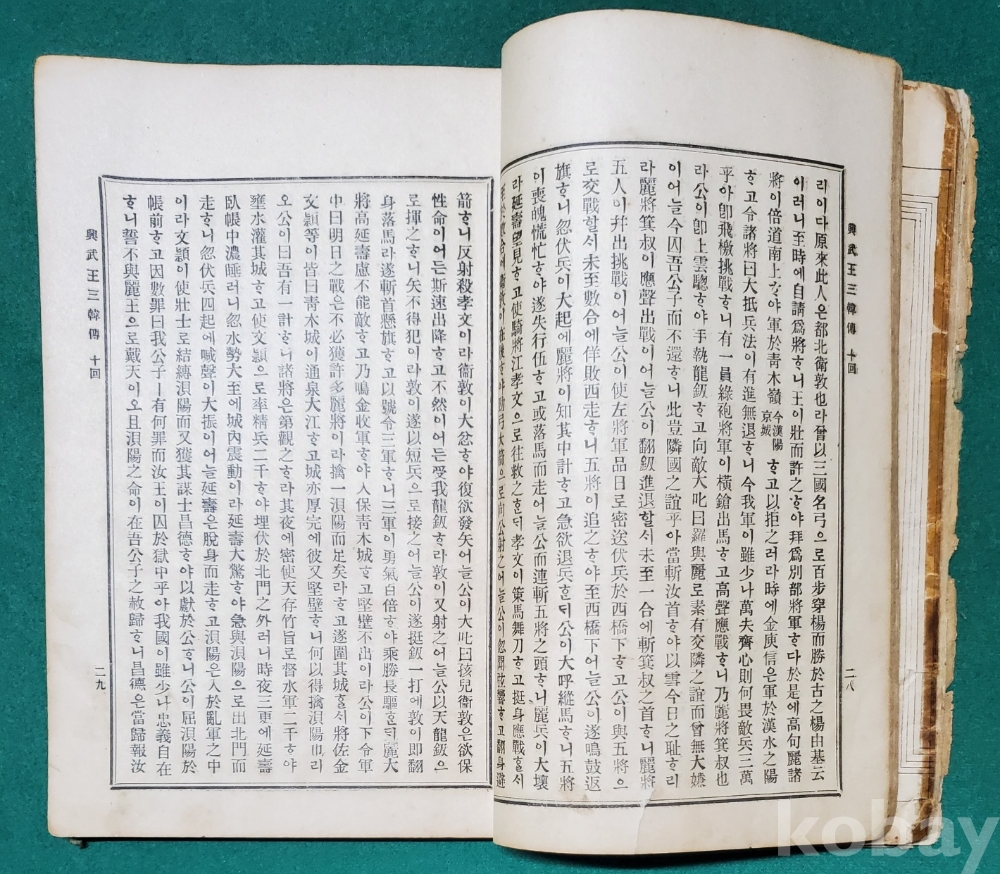 興武王三韓傳 十回 二八
리이다原來此人은都北衛敦也라曾以三國名弓으로百步穿楊而勝於古之楊由基云
이러니至時에自請爲將ᄒᆞ니王이壯而許之ᄒᆞ야拜爲別部將軍ᄒᆞ다於是에高句麗諸
將이倍道南上ᄒᆞ야軍於靑木嶺 今漢陽京城 ᄒᆞ고以拒之러라時에金庾信은軍於漢水之陽
ᄒᆞ고令諸將曰大抵兵法이有進無退ᄒᆞ니今我軍이雖少나萬夫齊心則何畏敵兵三萬
乎아卽飛檄挑戰ᄒᆞ니有一員綠袍將軍이橫鎗出馬ᄒᆞ고高聲應戰ᄒᆞ니乃麗將箕叔也
라公이卽上雲騘ᄒᆞ야手執龍釼ᄒᆞ고向敵大叱曰羅與麗로素有交隣之誼而曾無大嫌
이어늘今囚吾公子而不還ᄒᆞ니此豈隣國之誼乎아當斬汝首ᄒᆞ야以雪今日之耻ᄒᆞ리
라麗將箕叔이應聲出戰이어늘公이翻釼進退ᄒᆞᆯᄉᆡ未至一合에斬箕叔之首ᄒᆞ니麗將
五人이幷出挑戰이어늘公이使左將軍品日로密送伏兵於西橋下ᄒᆞ고公이與五將으
로交戰ᄒᆞᆯᄉᆡ未至數合에佯敗西走ᄒᆞ니五將이追之ᄒᆞ야至西橋下어늘公이遂鳴鼓返
旗ᄒᆞ니忽伏兵이大起에麗將이知其中計ᄒᆞ고急欲退兵ᄒᆞ되公이大呼縱馬ᄒᆞ니五將
이喪魄慌忙ᄒᆞ야遂失行伍ᄒᆞ고或落馬而走어늘公而連斬五將之頭ᄒᆞ니麗兵이大壞
라延壽望見ᄒᆞ고使騎將江孝文으로往救之ᄒᆞ되孝文이策馬舞刀ᄒᆞ고挺身應戰ᄒᆞᆯᄉᆡ
向公射之어늘公이忽聞弦響ᄒᆞ고翻身避
箭ᄒᆞ니反射殺孝文이라衛敦이大忿ᄒᆞ야復欲發矢어늘公이大叱曰孩兒衛敦은欲保
性命이어든斯速出降ᄒᆞ고不然이어든受我龍釼ᄒᆞ라敦이又射之어늘公以天龍釼으
로揮之ᄒᆞ니矢不得犯이라敦이遂以短兵으로接之어늘公이遂挺釼一打에敦이卽翻
身落馬라遂斬首懸旗ᄒᆞ고以號令三軍ᄒᆞ니三軍이勇氣百倍ᄒᆞ야乘勝長驅ᄒᆞ되麗大
將高延壽慮不能敵ᄒᆞ고乃鳴金收軍ᄒᆞ야入保靑木城ᄒᆞ고堅壁不出이라公이下令軍
中曰明日之戰은不必獲許多麗將이라擒一湨陽而足矣라ᄒᆞ고遂圍其城ᄒᆞᆯᄉᆡ將佐金
文穎等이皆曰靑木城이通泉大江ᄒᆞ고城亦厚完에彼又堅壁ᄒᆞ니何以得擒湨陽也리
오公이曰吾有一計ᄒᆞ니諸將은第觀之ᄒᆞ라其夜에密使天存竹旨로督水軍二千ᄒᆞ야
壅水灌其城ᄒᆞ고使文穎으로率精兵二千ᄒᆞ야埋伏於北門之外러니時夜三更에延壽
臥帳中濃睡러니忽水勢大至에城內震動이라延壽大驚ᄒᆞ야急與湨陽으로出北門而
走ᄒᆞ니忽伏兵四起에喊聲이大振이어늘延壽은脫身而走ᄒᆞ고湨陽은入於亂軍之中
이라文穎이使壯士로結縛湨陽而又獲其謀士昌德ᄒᆞ야以獻於公ᄒᆞ니公이屈湨陽於
帳前ᄒᆞ고因數罪曰我公子ㅣ有何罪而汝王이囚於獄中乎아我國이雖少나忠義自在
ᄒᆞ니誓不與麗王으로戴天이오且湨陽之命이在吾公子之赦歸ᄒᆞ니昌德은當歸報汝
興武王三韓傳 十回 二九
kobay